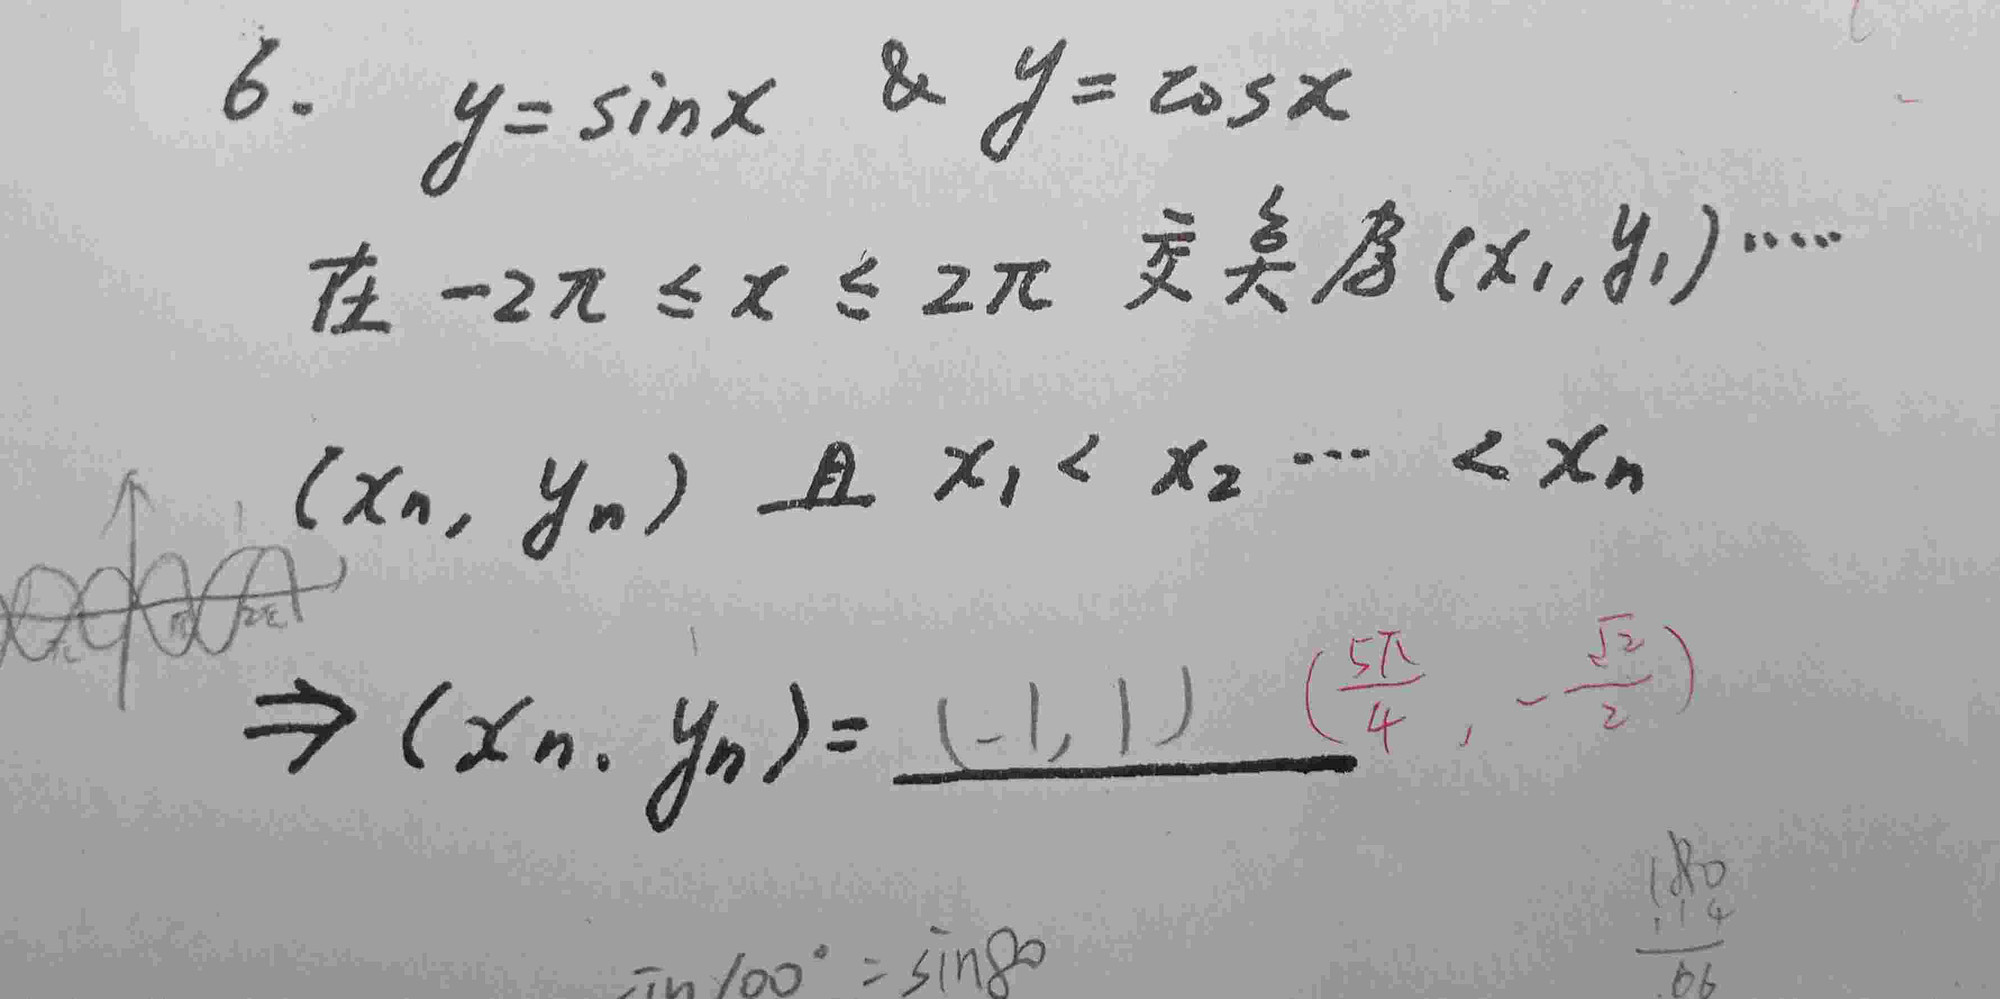 6. y=sinx & y=cosx
在 -2π ≤ x ≤ 2π 交點為(x₁,y₁)……
(xₙ, yₙ) 且 x₁ < x₂ … < xₙ
2π
⇒ (xₙ, yₙ)= (-1, 1) (5π/4, -√2/2)
180
.14
.06
sin100° = sin80